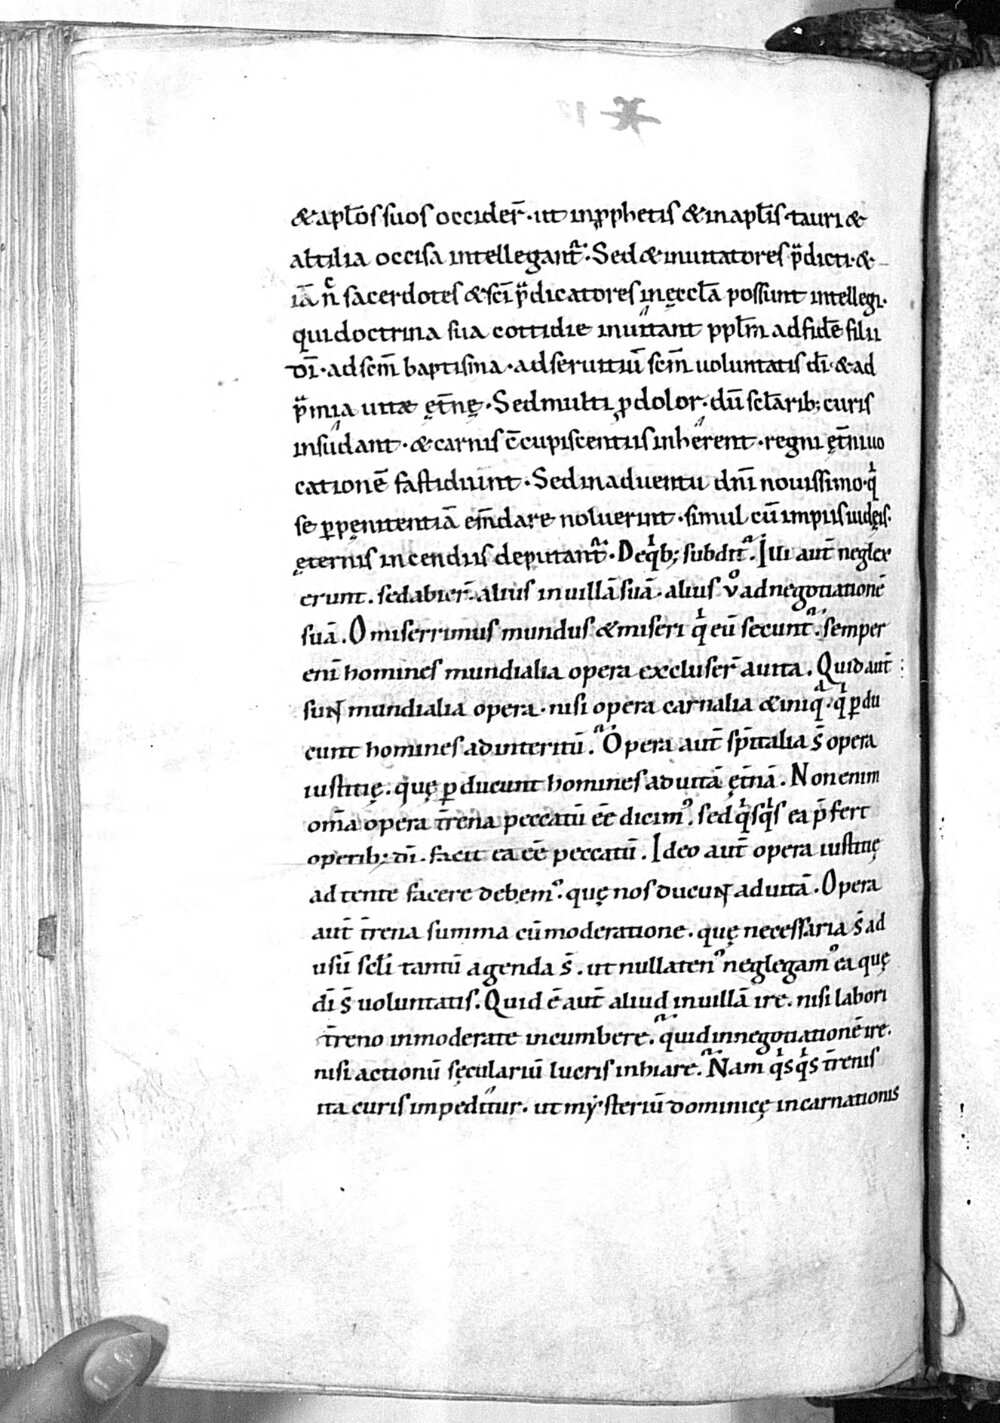 & apl̄os suos occider̄ · ut in ꝓphetis & in apl̄is tauri &
altilia occisa intellegant᷑ · Sed & inuitatores p̄dicti · &
iā n̄ sacerdotes & sc̄i p̄dicatores in ęccl̄a possunt intellegi ·
qui doctrina sua cottidie inuitant ppl̄m ad fidē filii
dī · ad sc̄m baptisma · ad seruitiū sc̄m uoluntatis dī · & ad
p̄mia uitæ ęt̄nę · Sed multi ꝓ dolor · dū sclarib; curis
insudant · & carnis c̄cupiscentiis inherent · regni ęt̄ni uo
cationē fastidiunt · Sed in aduentu dn̄i nouissimo · qͥ
se ꝑ pęnitentiā em̄dare noluerint · simul cū impiis iudęis ·
ęternis incendiis deputant᷑ · De qͥb; subdit᷑ · Illi aut̄ neglex
erunt · sed abier̄ · alius in uillā suā · alius uͦ ad negotiationē
suā · O miserrimus mundus & miseri qͥ eū secunt᷑ · semper
enī homines mundialia opera excluser̄ a uita · Quid aut̄
sunt mundialia opera · nisi opera carnalia & iniqͣ · qͥ ꝑdu
cunt homines ad interitū · Opera aut̄ sp̄italia s̄ opera
iustitię · quę ꝑducunt homines ad uitā ęt̄nā · Non enim
om̄a opera t̄rena peccatū ēē dicimꝰ · sed qͥsqͥs ea p̄fert
operib; dī · facit ea ēē peccatū · Ideo aut̄ opera iustitię
adtente facere debemꝰ · quę nos ducunt ad uitā · Opera
aut̄ t̄rena summa cū moderatione · quę necessaria s̄ ad
usū scl̄i tantū agenda s̄ · ut nullatenꝰ neglegamꝰ ea quę
dī s̄ uoluntatis · Quid ē aut̄ aliud in uillā ire · nisi labori
t̄reno inmoderate incumbere · quid in negotiationē ire ·
nisi actionū sęculariū lucris inhiare · Nam qͥsqͥs t̄renis
ita curis impeditur · ut mẏsteriū dominicę incarnationis